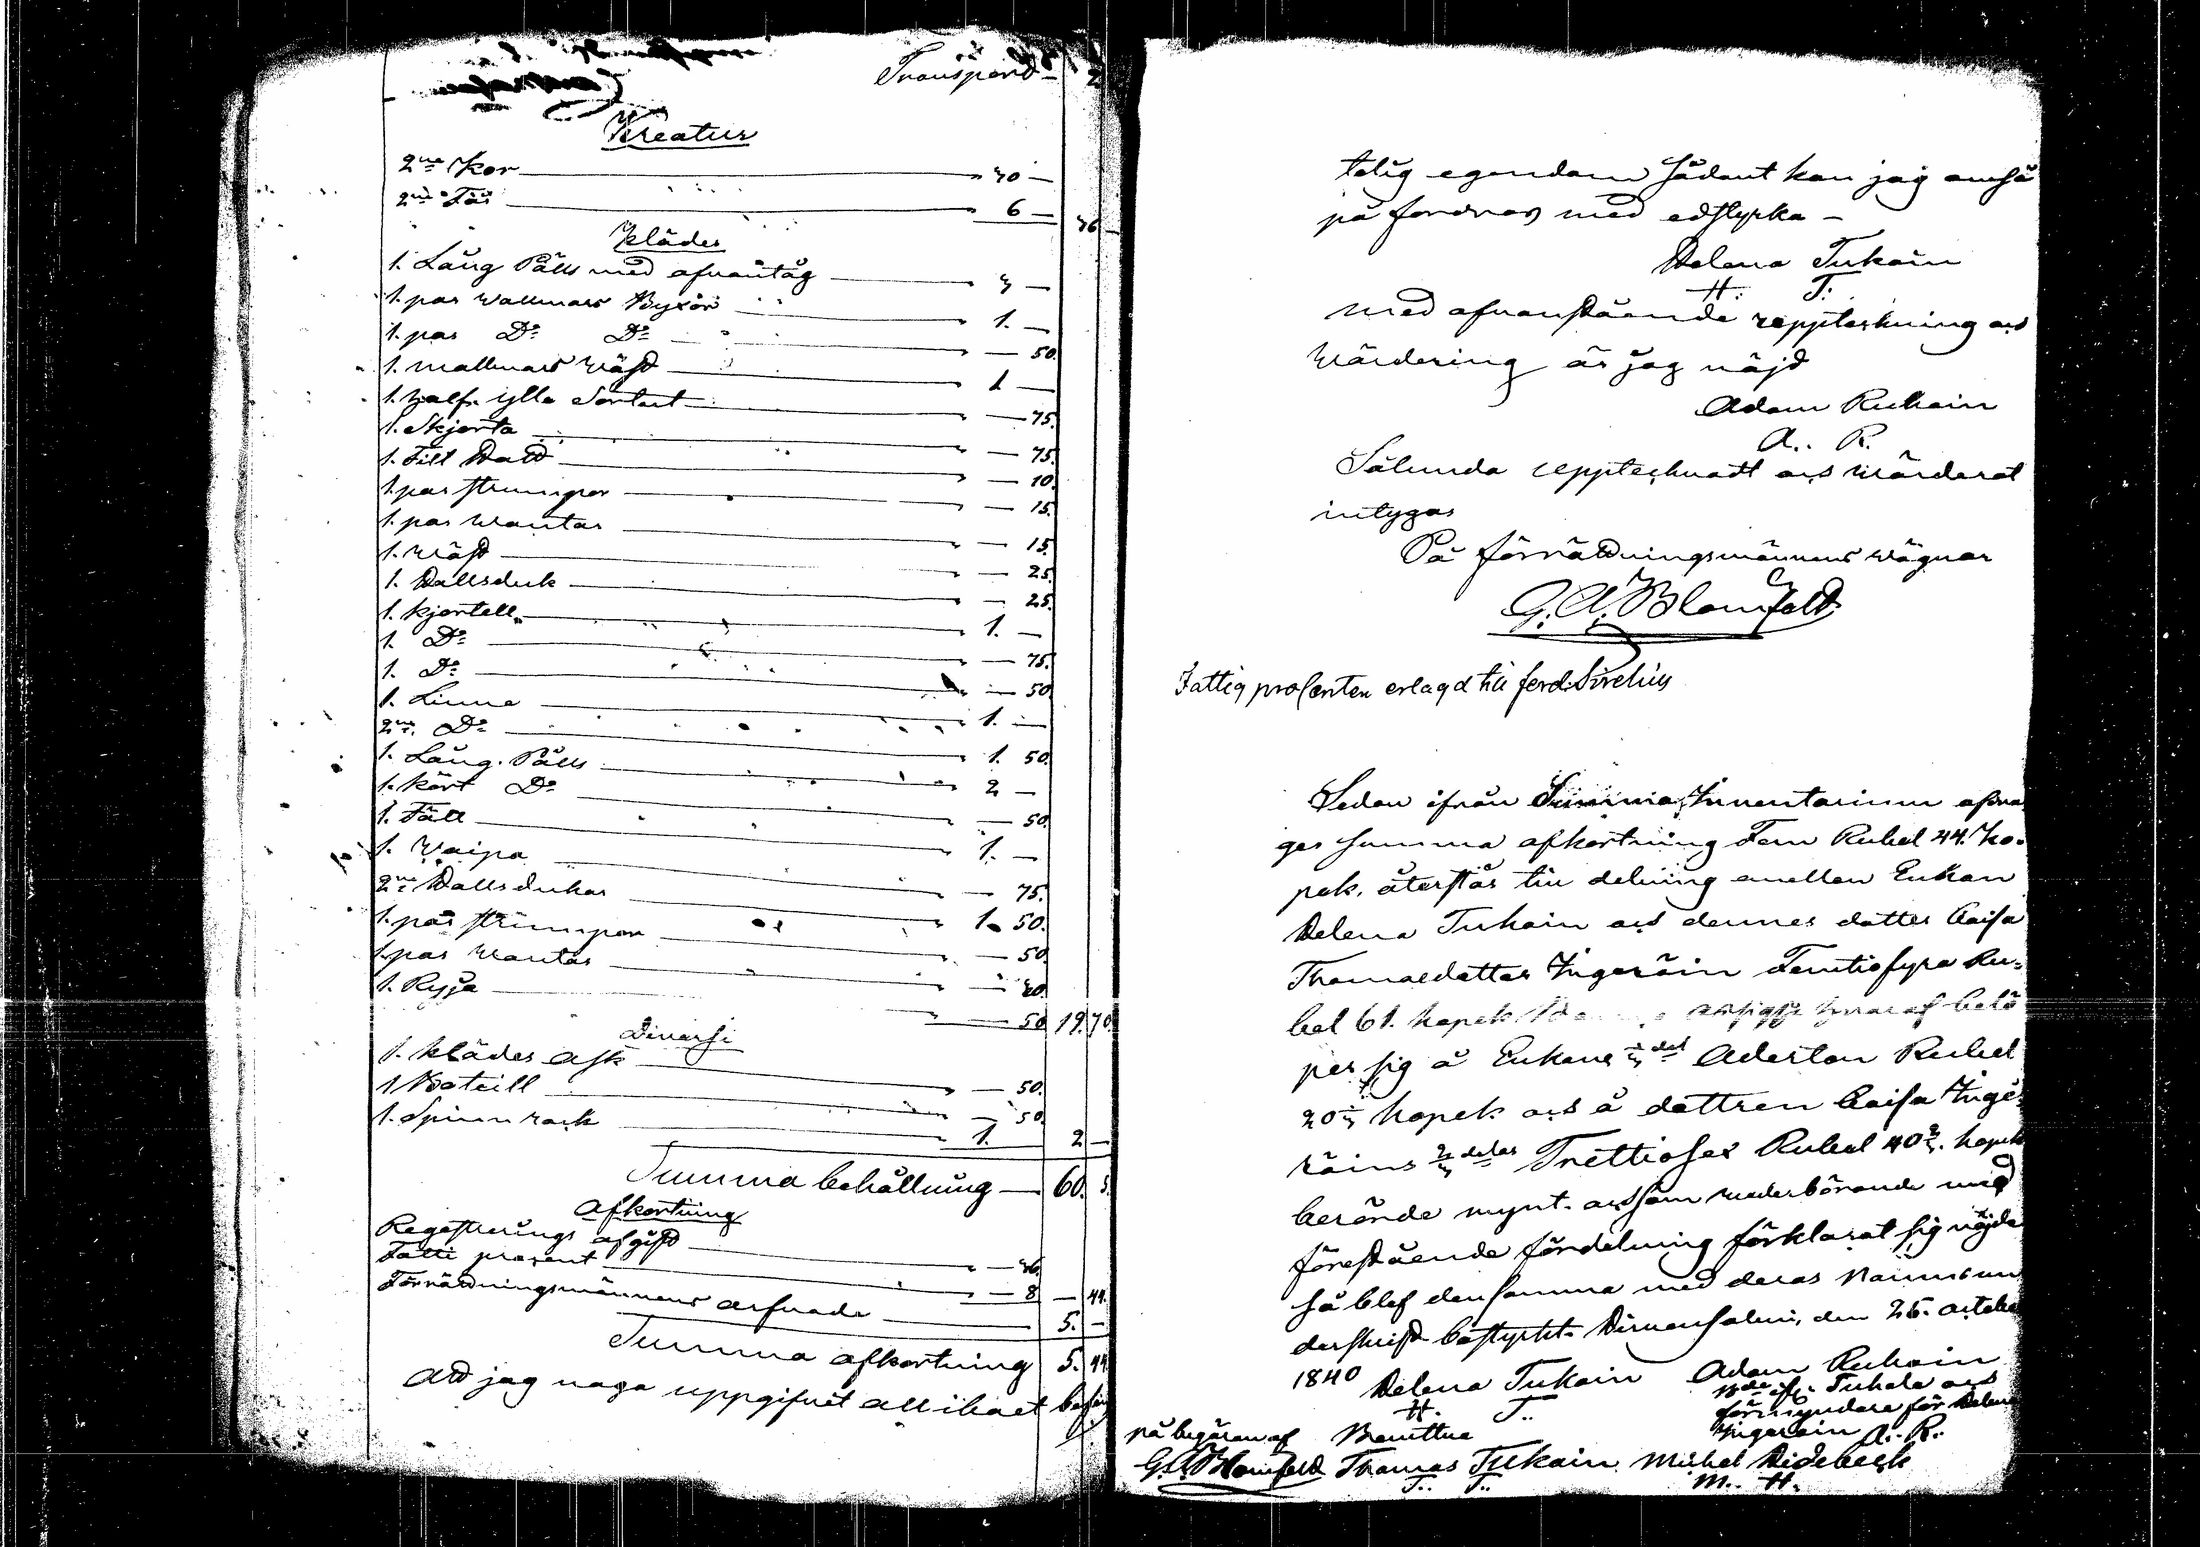 Transpord —
Kreatur
2ne Kor — 30 —
2ne Får — 6 — 36 —
Kläder
1. Lång Päls med afvantåg — 3 —
1. par wallmars Byxor — 1. —
1. par Do Do — 50.
1. wallmars wäst — 1 —
1. half ylle Sortut — 75.
1. Skjorta — 75.
1. Filt Hatt — 10.
1. par strumpor — 15.
1. par wantar — 15.
1. wäst — 25.
1. Hallsduk — 25.
1. kjortell — 1. —
1. Do — 75.
1. Do — 50
1. Linne — 1. —
2ne Do — 1. 50.
1. Lång. Päls — 2 —
1. kört Do — 50.
1. Fäll — 1. —
1. Vaipa — 75.
2ne Hallsdukar — 1. 50.
1. par strumpor — 50.
1. par wantar — 20.
1. Ryja — 50. 19. 70.
Diversi
1. kläder ask — 50.
1 Boteill — 50.
1. Spinn rock — 1. 2 —
Summa behållning — 60. 5.
Afkortning
Regestrerings afgift — 36.
Fatti procent — 8 — 44.
Förrättningsmännens arfvode — 5. —
Summa afkortning 5. 44
Att jag noga uppgifvit allt ihvet
telig egendom sådant kan jag omså
på fordras med ed styrka —
Helena Tukain
H: T:
med afvanstående uppteckning och
wärdering är jag nöjd
Adam Rukain
A. R.
Sålunda uppteknadt och wärderat
intygar
På förrättningsmännens wägnar
G. A. Blomfelt
Fattig procenten erlagd till ferd: Sirelius
Sedan ifrån Summa Inventarium afdra
ges summa afkortning Fem Rubel 44. Ko-
pek, återstår till delning emellan Enkan
Helena Tukain och dennes dotter Caisa
Thomasdotter Ingeräin Femtiofyra Ru-
bel 61. kopek hvaraf belö
per sig å Enkans 1/3 del Aderton Rubel
20 1/3 kopek och å dottren Caisa Inge-
räins 2/3 delar Trettiosex Rubel 40 2/3. kopek
berörde mynt. och som wederbörande med
förestående fördelning förklarat sig nöjda
så blef densamma med deras Namn un
derskrift bestyrkt. Hirvensalmi, den 25. october
1840 Helena Tukain Adam Rukain
H. T. Tukala och
förmyndare för Helena
på begäran af Bevittna Ingeräin A. R.
G. A. Blomfelt Thomas Tukain Michel Hidebeck
T. T. M. H.